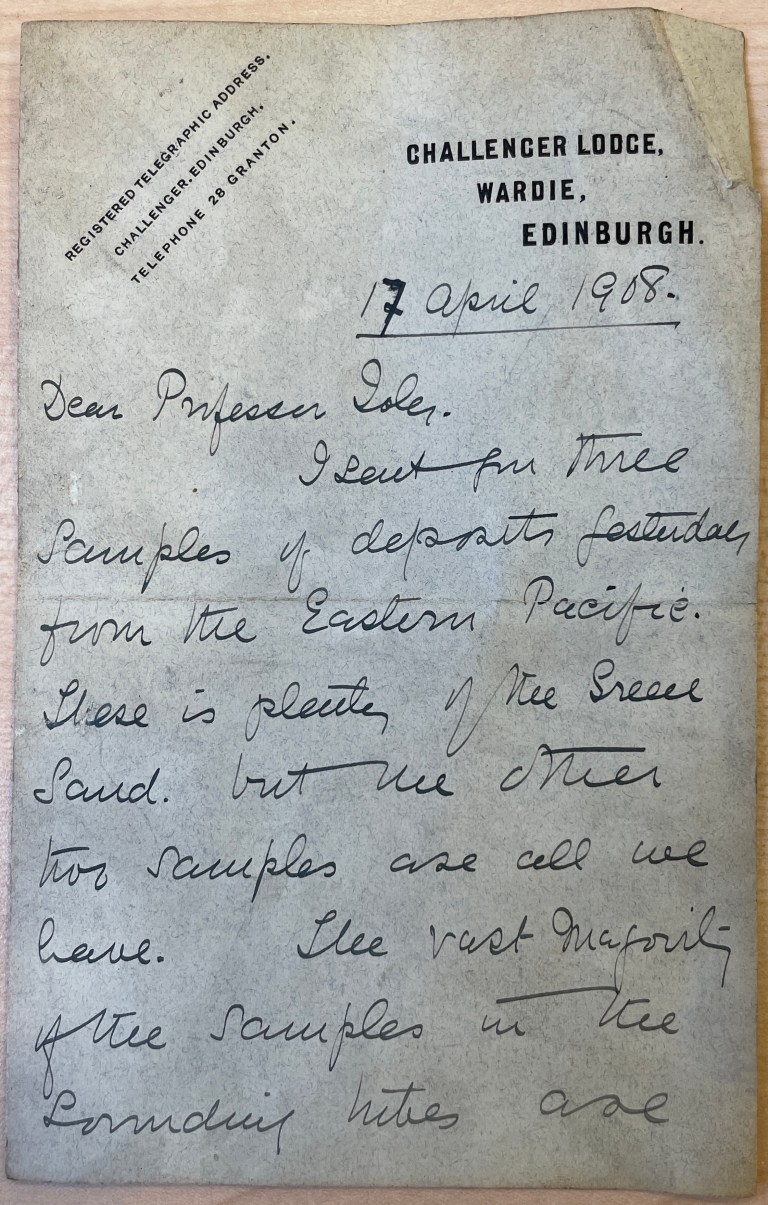 REGISTERED TELEGRAPHIC ADDRESS.
CHALLENGER. EDINBURGH.
TELEPHONE 28 GRANTON.
CHALLENGER LODGE,
WARDIE,
EDINBURGH.
17 April 1908.
Dear Professor Joly.
I sent you three
samples of deposits yesterday
from the Eastern Pacific.
There is plenty of the Green
Sand. but the other
two samples are all we
have. The vast Majority
of the samples in the
Sounding tubes are